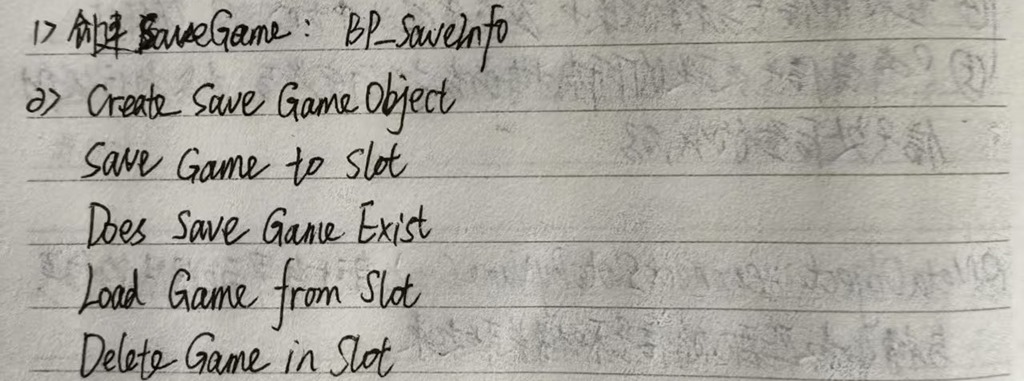 1> 创建 SaveGame: BP_SaveInfo
2> Create Save Game Object
Save Game to Slot
Does Save Game Exist
Load Game from Slot
Delete Game in Slot